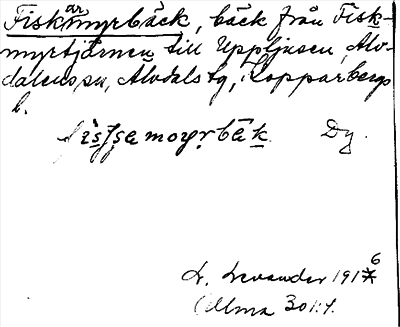 Fiskarmyrbäck, bäck från Fisk-
myrtjärnen till Uppljusen, Älv-
dalens sn, Älvdals tg, Kopparbergs
l.
Dy.
L. Levander 1916
(Ulma 301:1.